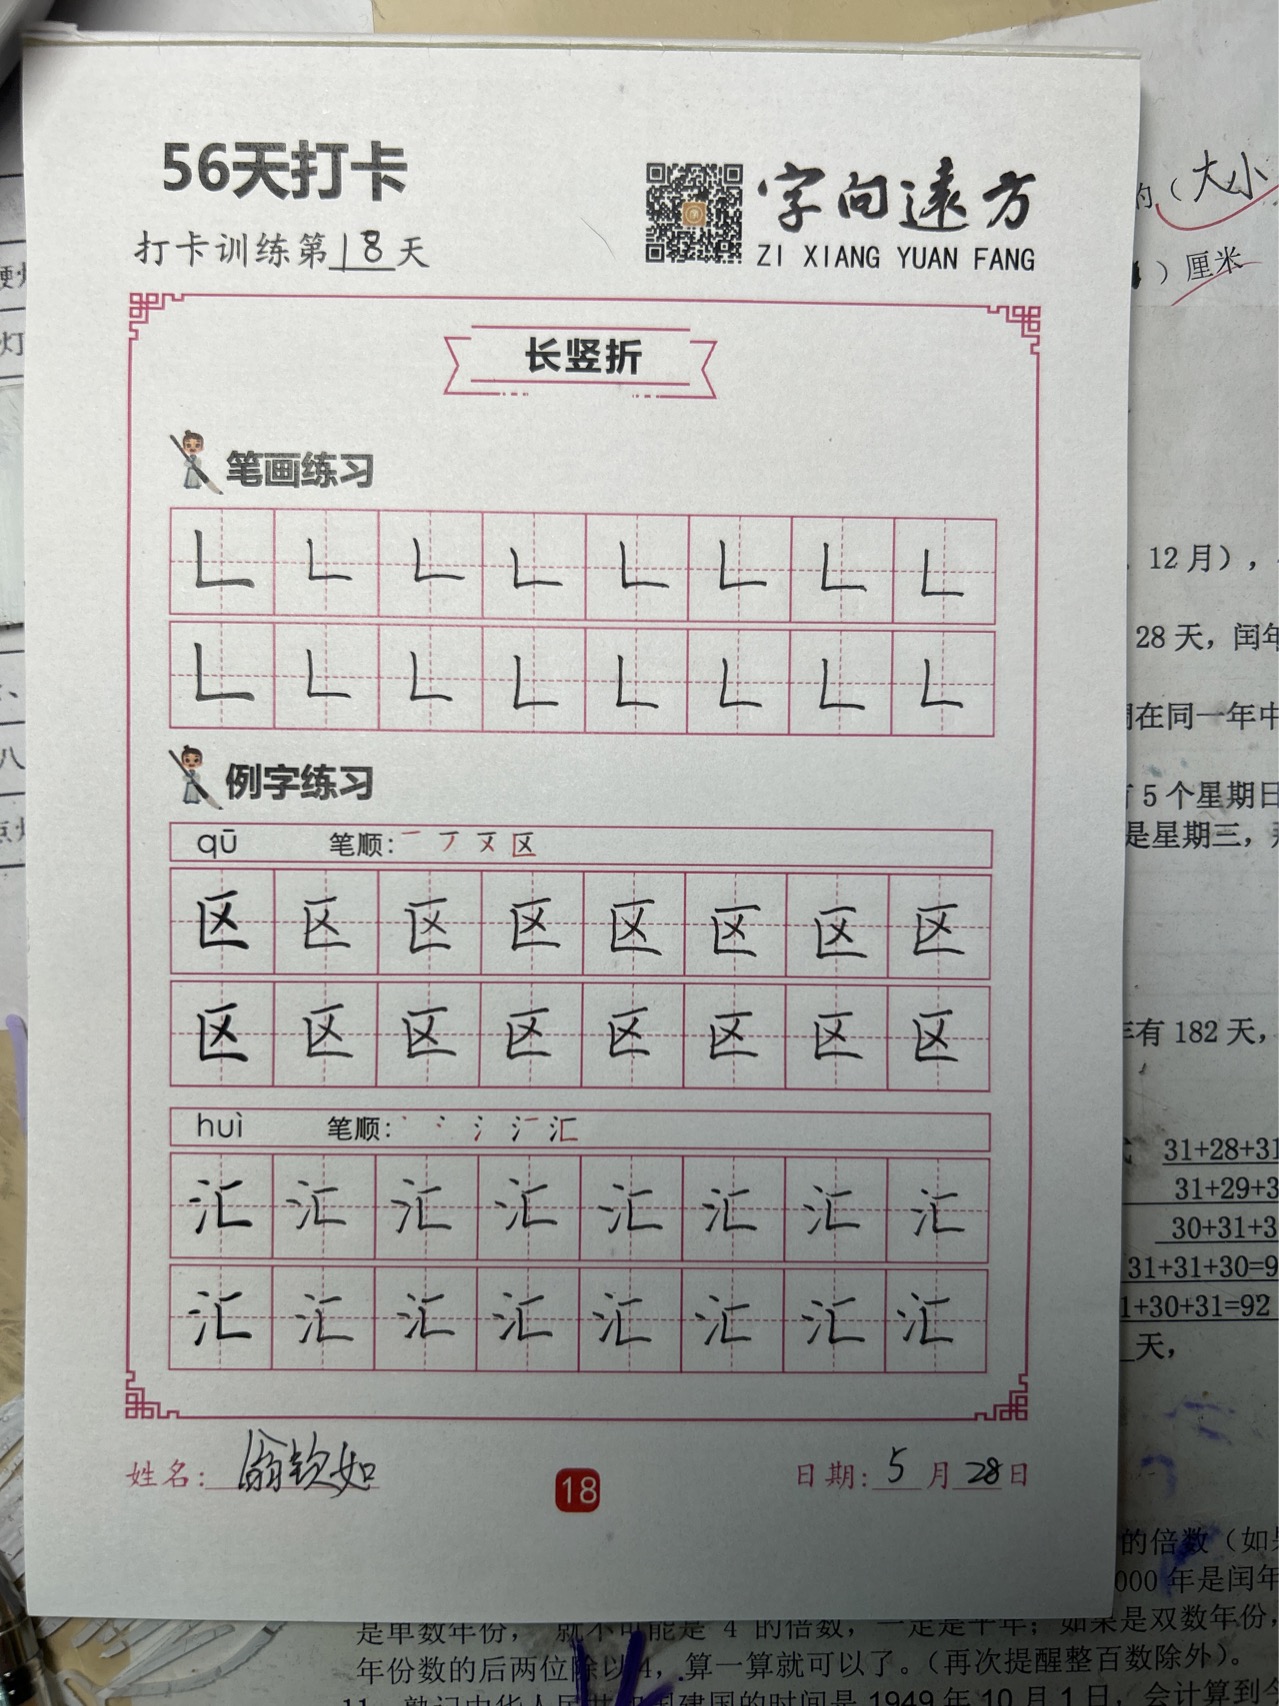 56天打卡
字向远方
ZI XIANG YUAN FANG
打卡训练第18天
长竖折
笔画练习
例字练习
qū 笔顺:
区 区 区 区 区 区 区 区
区 区 区 区 区 区 区 区
huì 笔顺:
汇 汇 汇 汇 汇 汇 汇 汇
汇 汇 汇 汇 汇 汇 汇 汇
姓名: 翁钦如
18
日期: 5月28日
的(大小
)厘米
12月),
28天,闰年
在同一年中
5个星期日
是星期三,
年有182天,
31+28+31
31+29+3
30+31+3
31+31+30=9
1+30+31=92
天,
的倍数(如
000年是闰年
是单数年份,就不可能是4的倍数,一定是平年;如果是双数年份,
年份数的后两位除以4,算一算就可以了。(再次提醒整百数除外)。
11、熟记中华人民共和国建国的时间是1949年10月1日,会计算到今